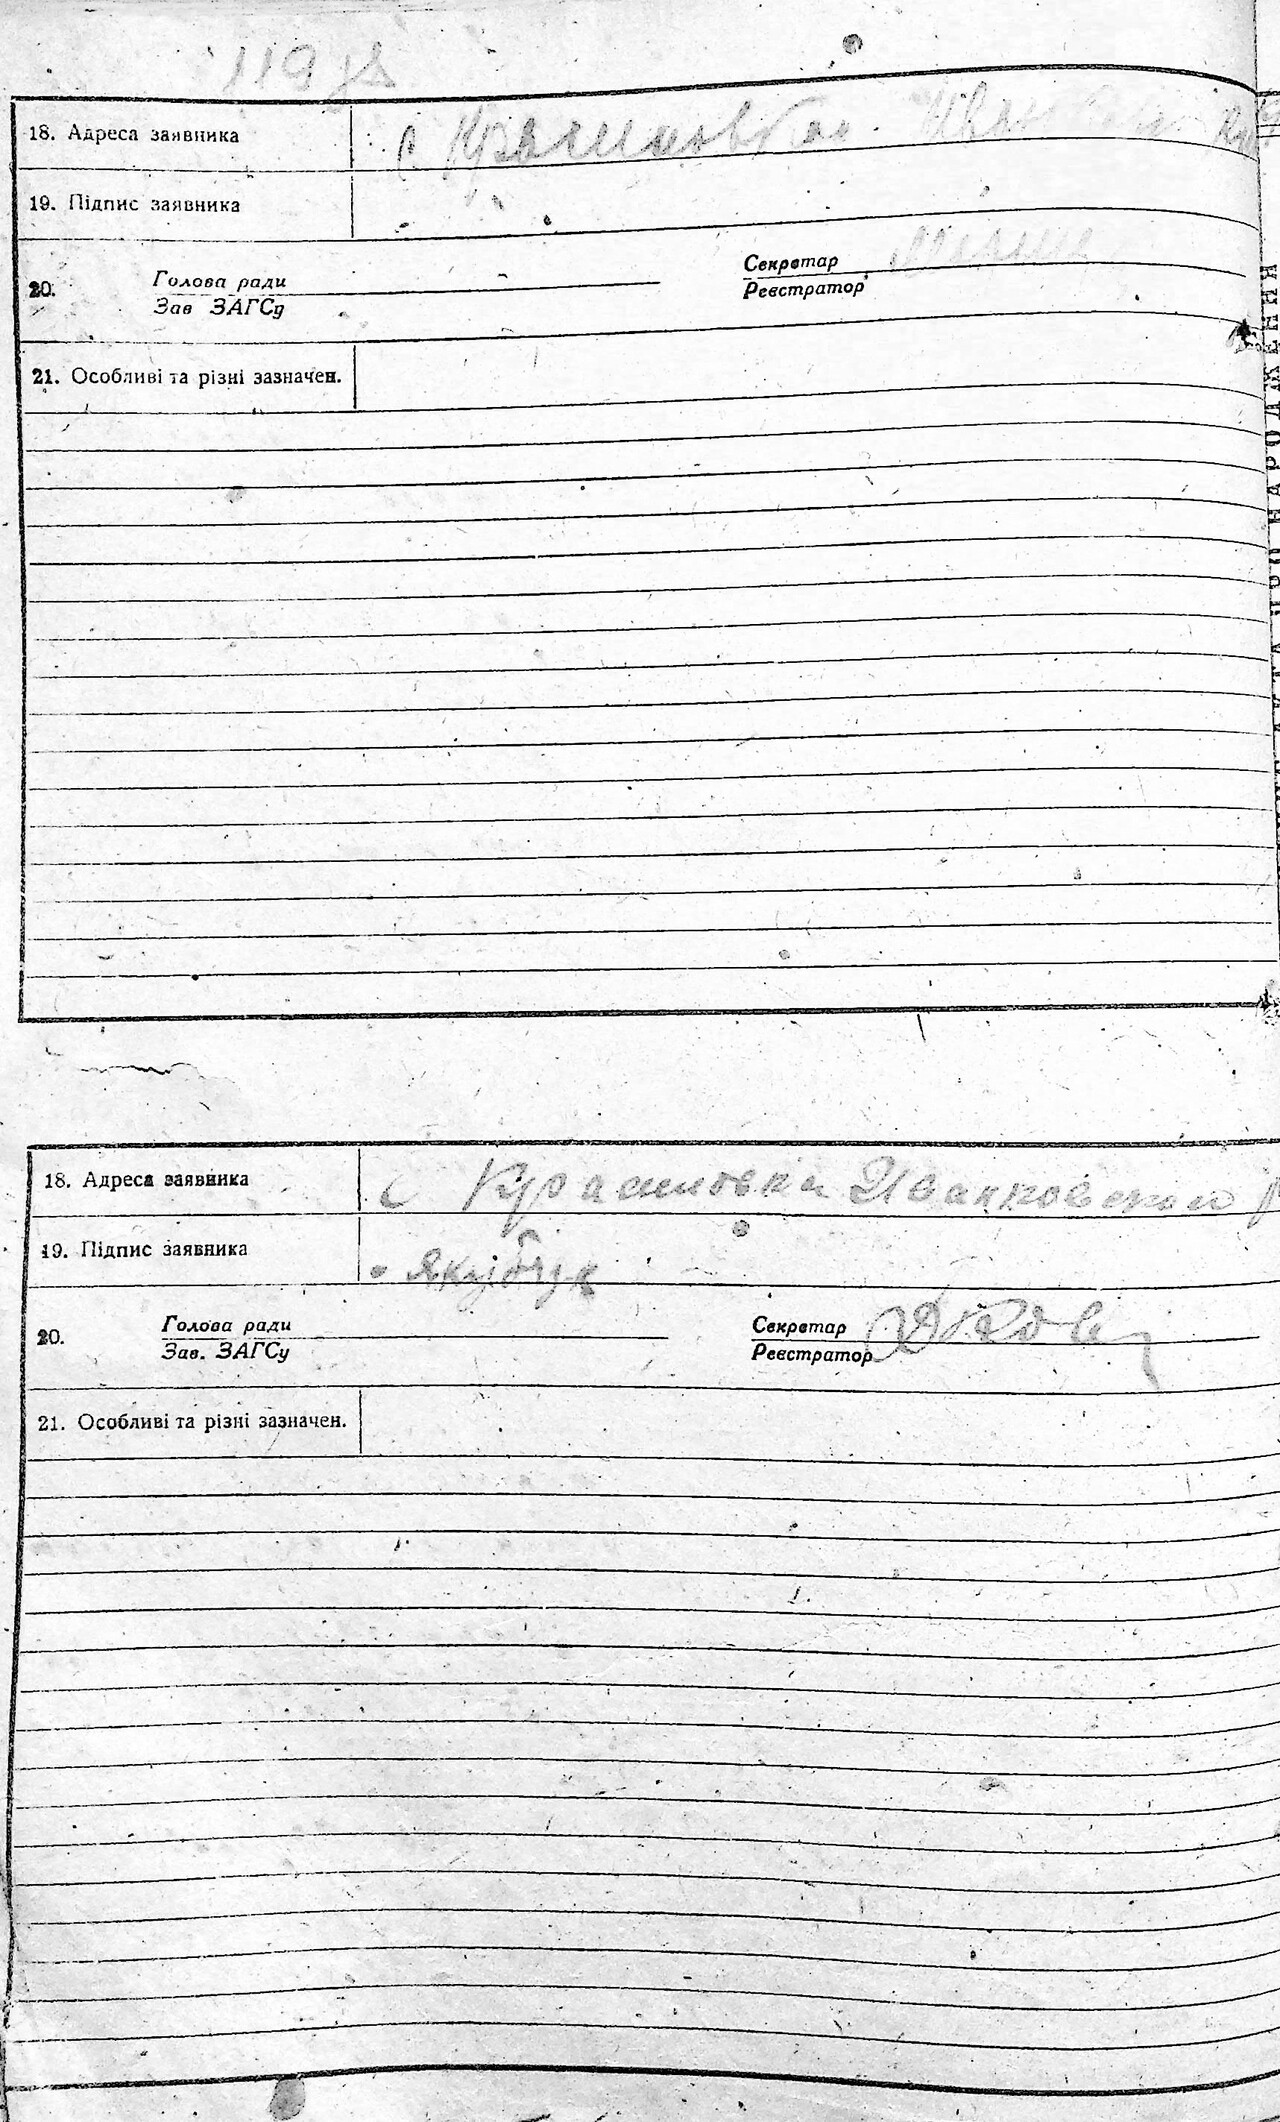 119
18. Адреса заявника с Красиловка
19. Підпис заявника
20. Голова ради Секретар
Зав ЗАГСу Реєстратор
21. Особливі та різні зазначен.
18. Адреса заявника с Красиловка Иванковского
19. Підпис заявника Якубчук
20. Голова ради Секретар
Зав. ЗАГСу Реєстратор
21. Особливі та різні зазначен.